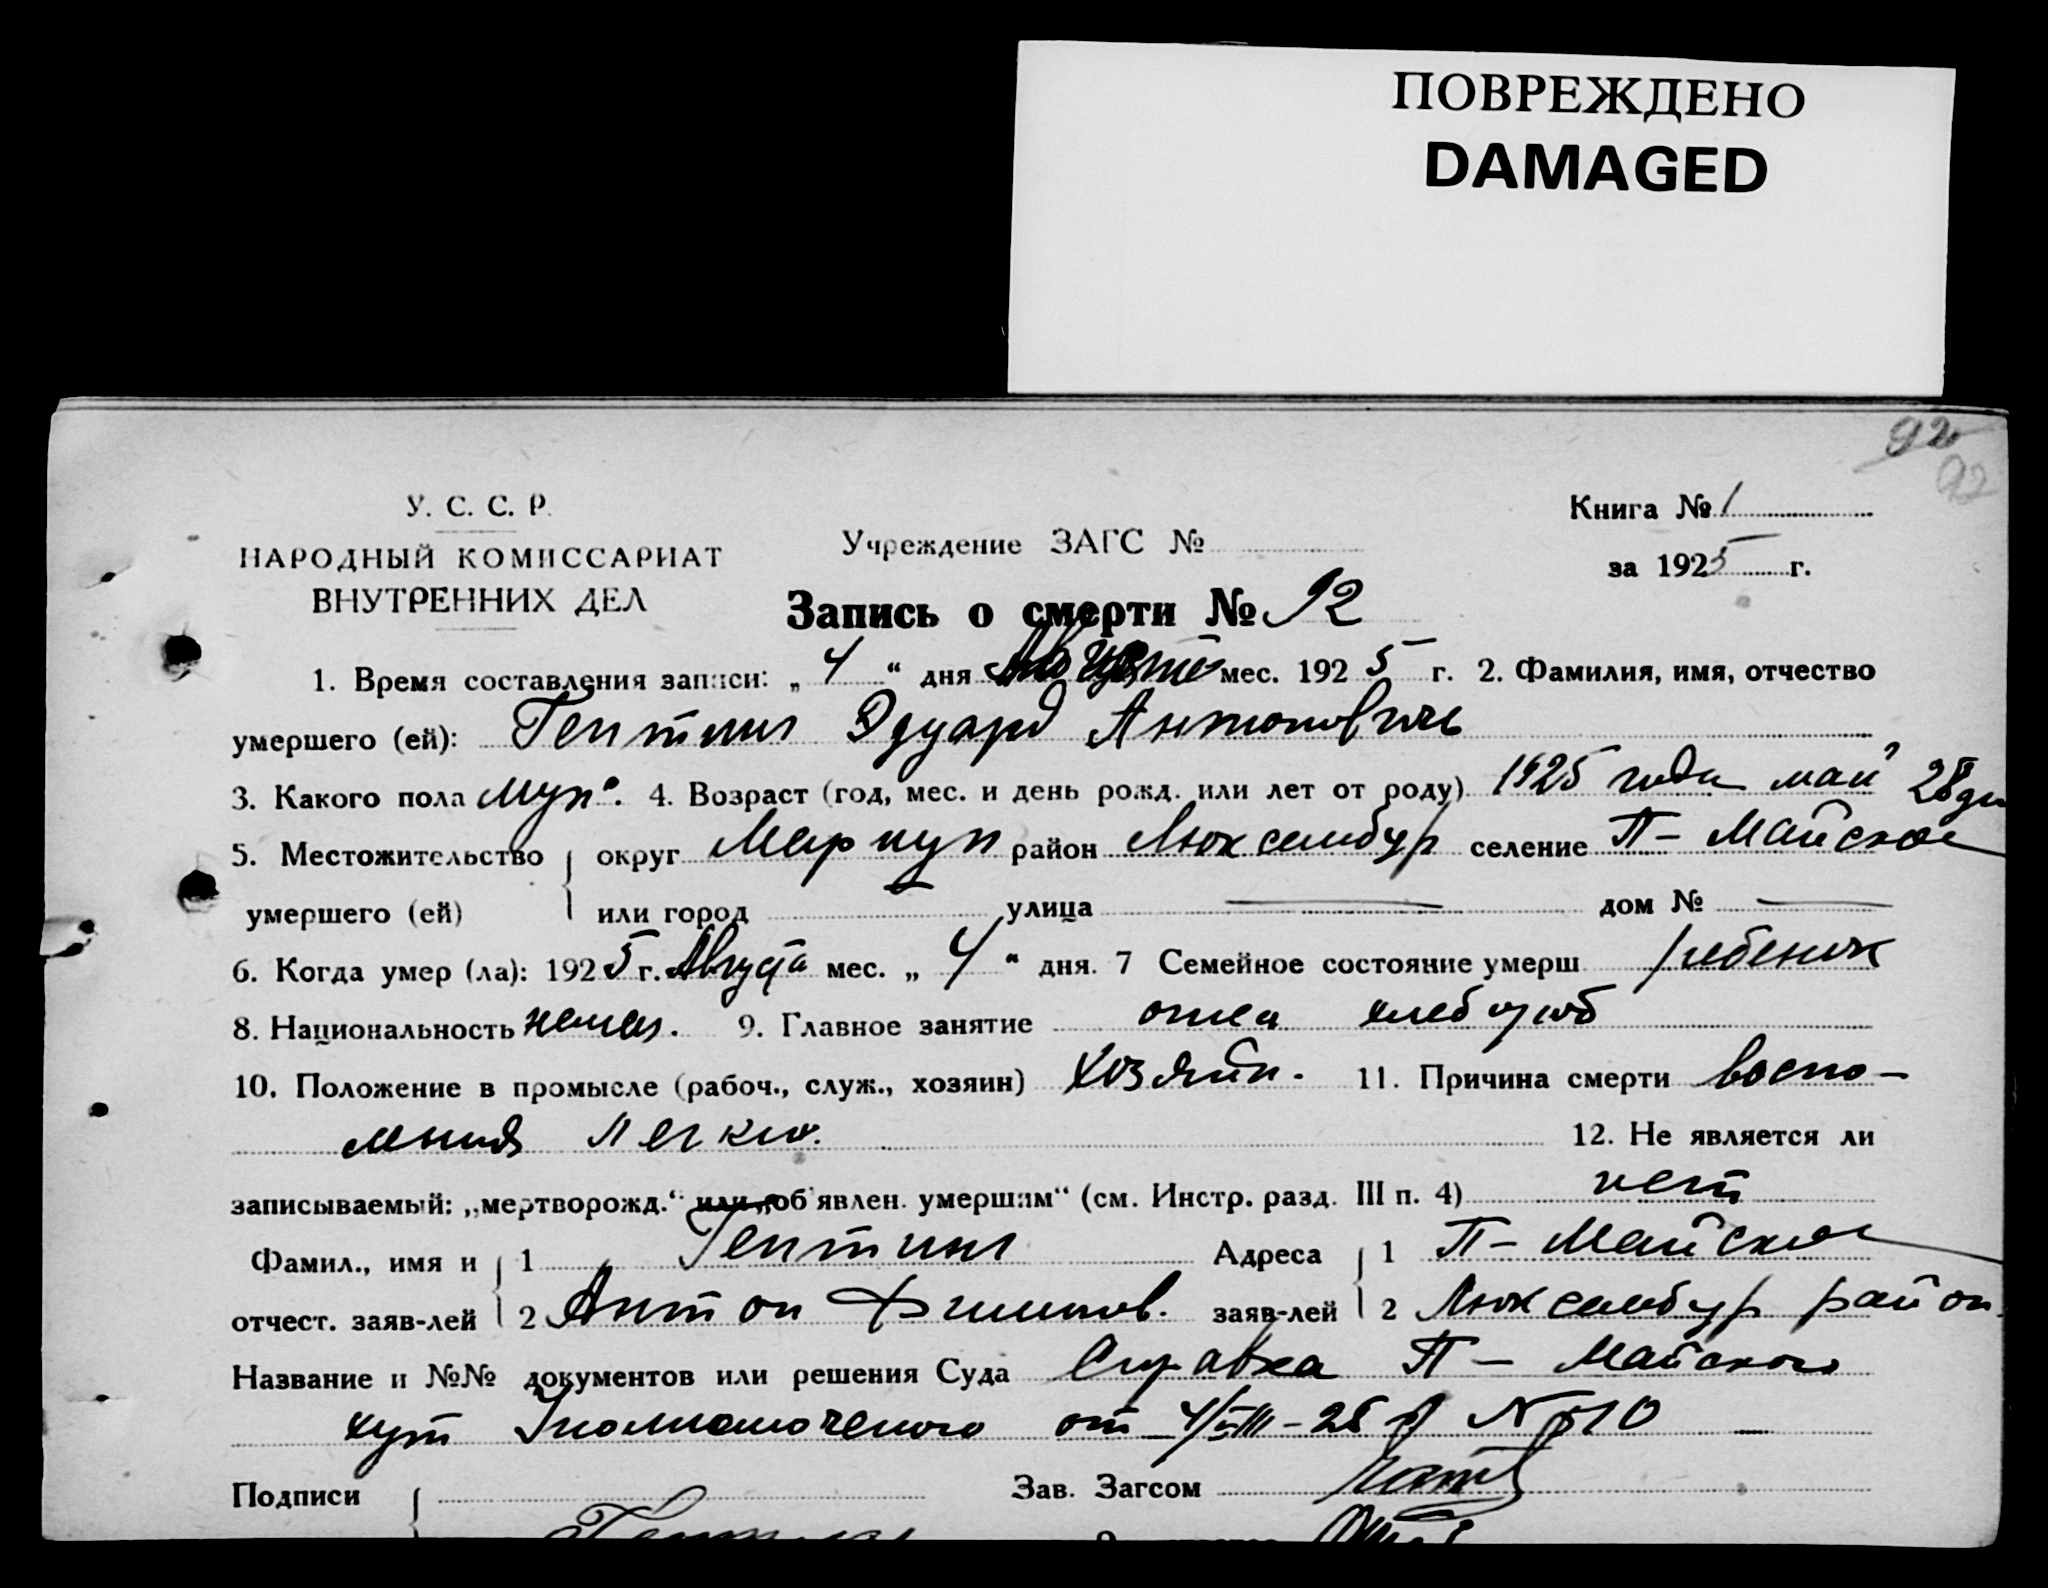 ПОВРЕЖДЕНО
DAMAGED
92
92
У. С. С. Р.
НАРОДНЫЙ КОМИССАРИАТ
ВНУТРЕННИХ ДЕЛ
Учреждение ЗАГС №
Книга № 1
за 1925 г.
Запись о смерти № 92
1. Время составления записи: „4“ дня Августа мес. 1925 г. 2. Фамилия, имя, отчество
умершего (ей): Гептинг Эдуард Антоновичь
3. Какого пола муж. 4. Возраст (год, мес. и день рожд. или лет от роду) 1925 года май 28 дн
5. Местожительство округ Мариуп район Люксембур селение П- Майское
умершего (ей) или город — улица — дом № —
6. Когда умер (ла): 1925 г. Августа мес. „4“ дня. 7 Семейное состояние умерш ребенок
8. Национальность немец. 9. Главное занятие отец хлебороб
10. Положение в промысле (рабоч., служ., хозяин) Хозяин. 11. Причина смерти воспо-
ления легких. 12. Не является ли
записываемый: „мертворожд.“ или „об'явлен. умершим“ (см. Инстр. разд. III п. 4) нет
Фамил., имя и 1 Гептинг Адреса 1 П- Майское
отчест. заяв-лей 2 Антон Филипов. заяв-лей 2 Люксембур район.
Название и №№ документов или решения Суда Справка П- Майского
хут Уполномоченого от 4/VIII-25 г N 510
Подписи Зав. Загсом
Гептинг